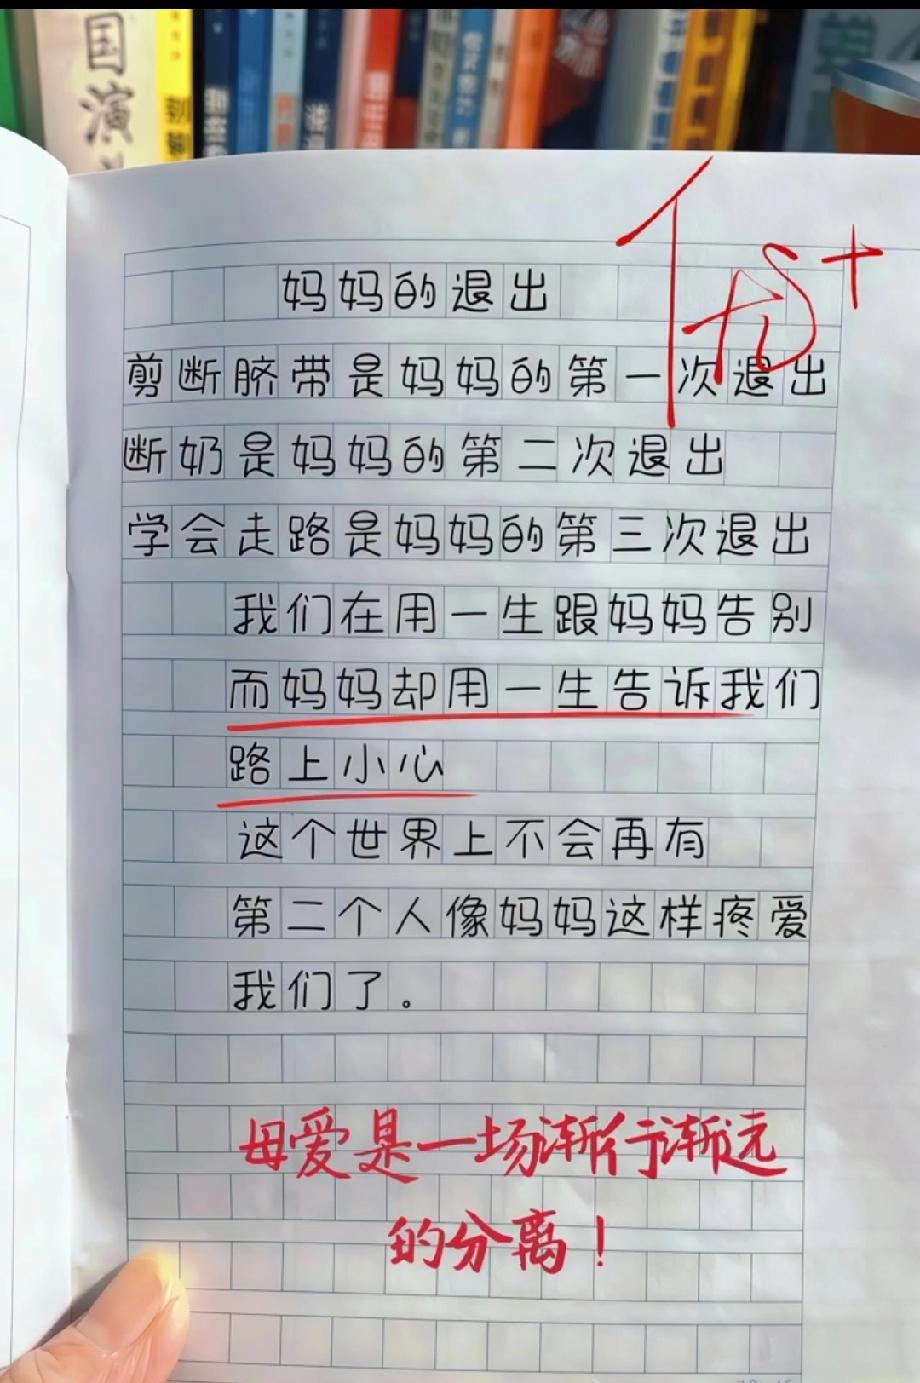 国演
妈妈的退出
优+
剪断脐带是妈妈的第一次退出
断奶是妈妈的第二次退出
学会走路是妈妈的第三次退出
我们在用一生跟妈妈告别
而妈妈却用一生告诉我们
路上小心
这个世界上不会再有
第二个人像妈妈这样疼爱
我们了。
母爱是一场渐行渐远
的分离！